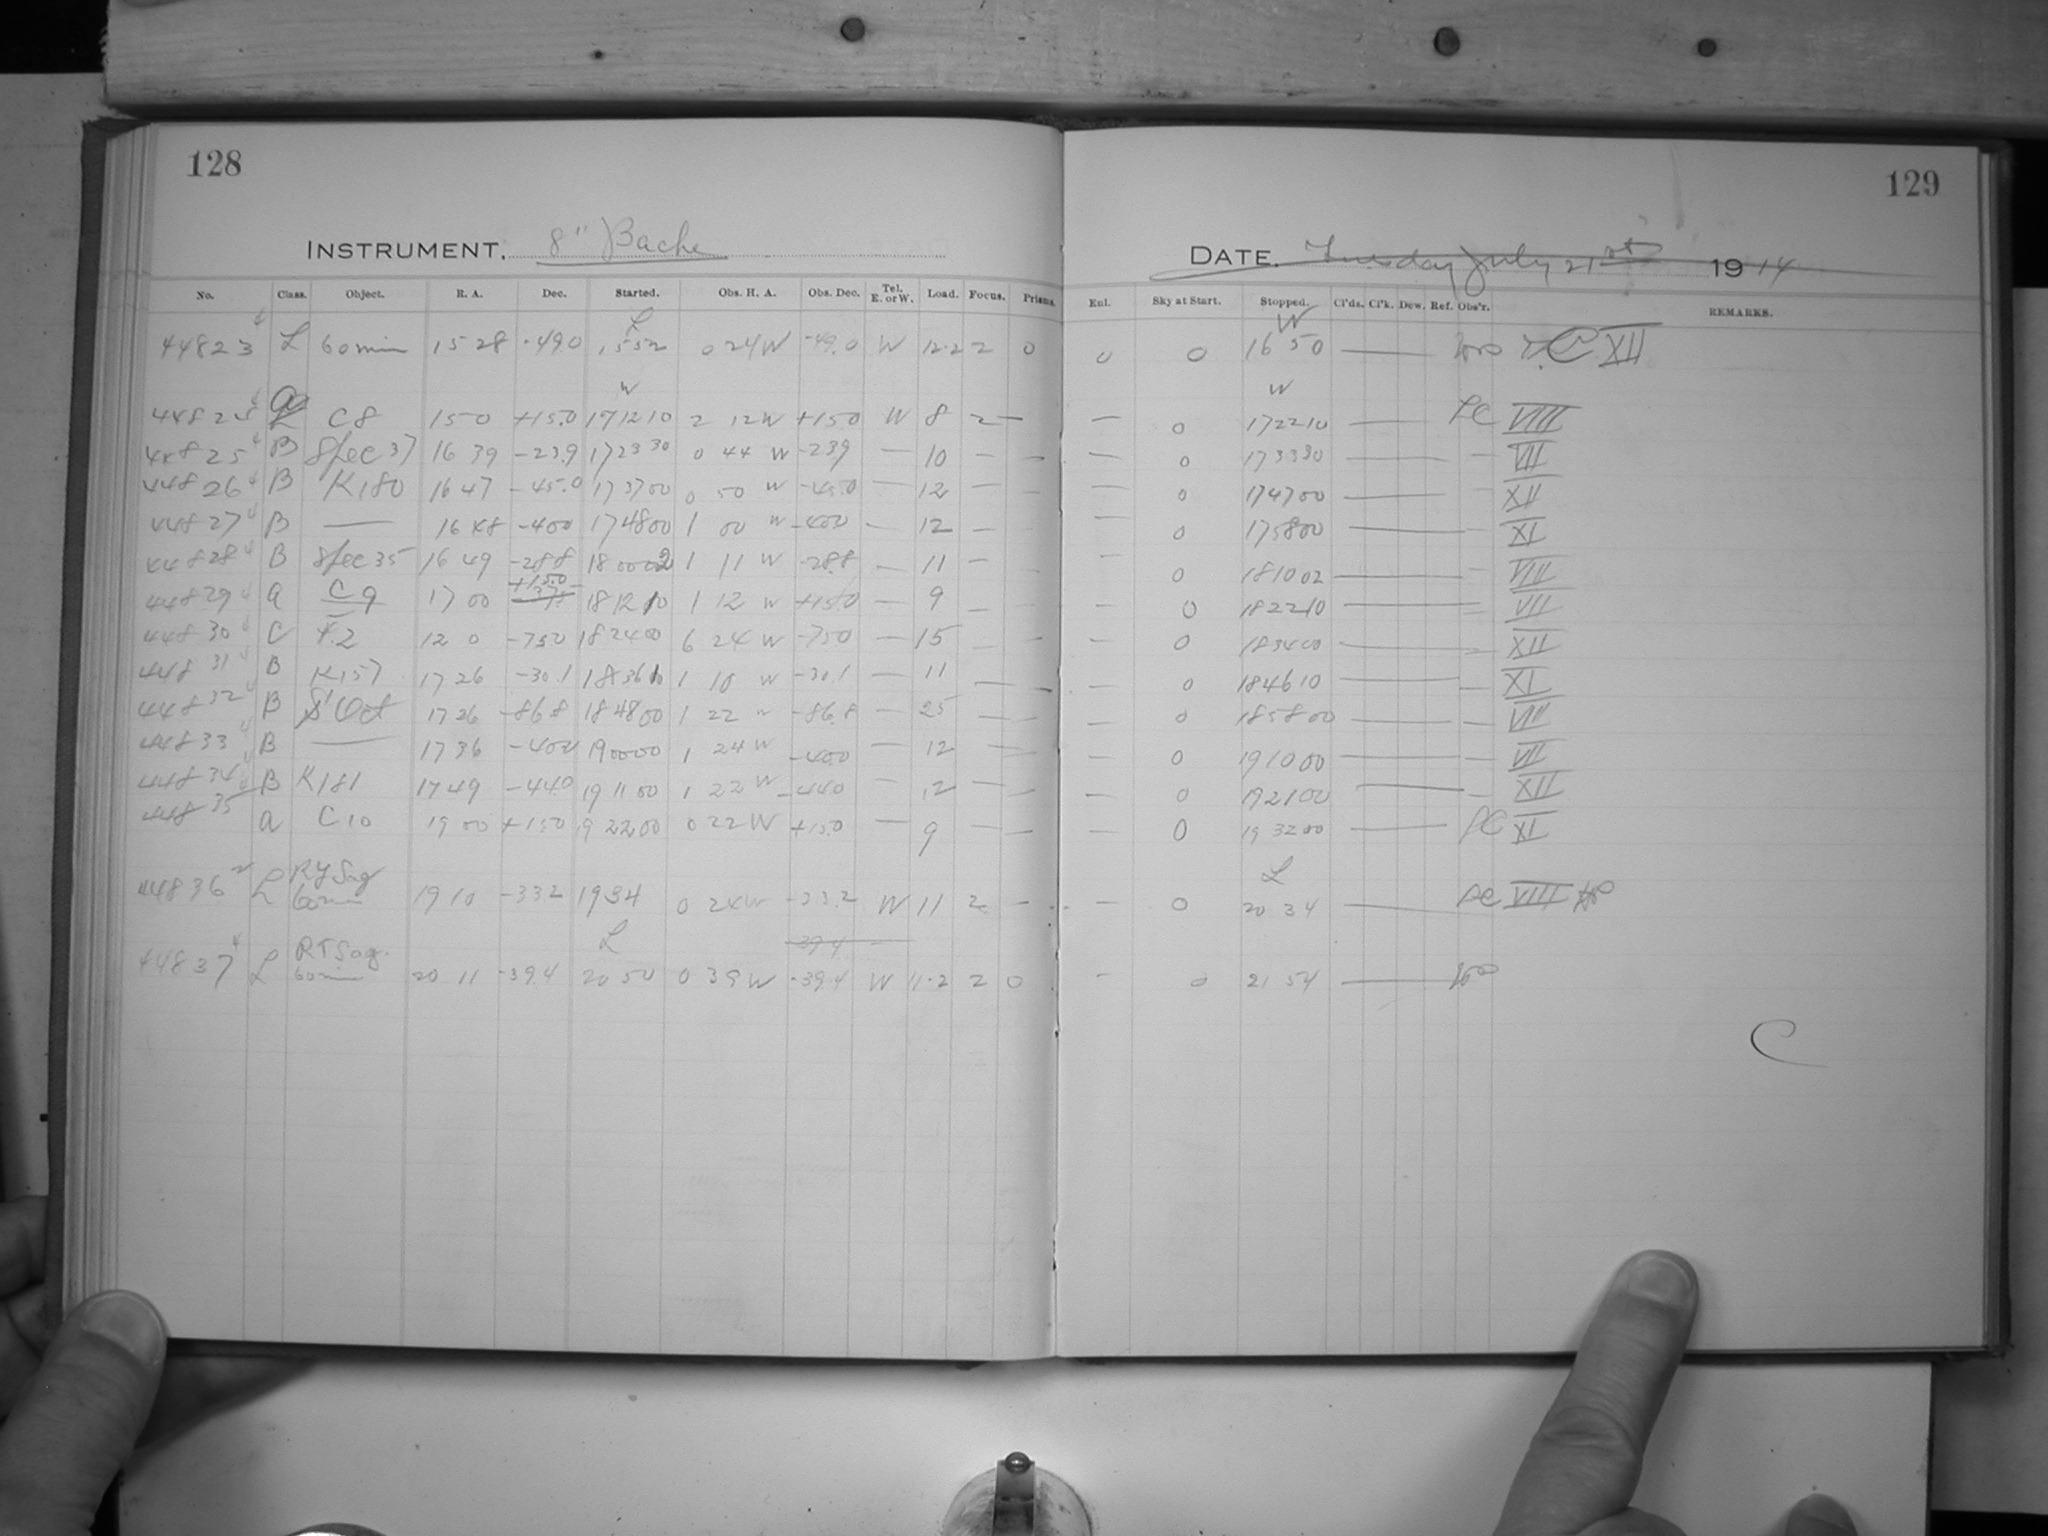 128
129
INSTRUMENT. 8" Bache
DATE. Tuesday July 21st 1914
No. Class. Object. R. A. Dec. Started. Obs. H. A. Obs. Dec. Tel. E. or W. Load. Focus. Prisms. Enl. Sky at Start. Stopped. Cl'ds. Cl'k. Dew. Ref. Obs'r. REMARKS.
L W
44823 L 60 min 15 28 -49.0 15 52 0 24 W -49.0 W 12.2 2 0 0 0 16 50 C XII
W W
a C8 15 0 +15.0 17 12 10 2 12 W +15.0 W 8 2 — — 0 17 22 10 LC VIII
44825 B Spec 37 16 39 -23.9 17 23 30 0 44 W -23.9 — 10 — — — 0 17 33 30 — VII
44826 B K180 16 47 -45.0 17 37 00 0 50 W -45.0 — 12 — — — 0 17 47 00 — XII
44827 B — 16 48 -40.0 17 48 00 1 00 W -40.0 — 12 — — — 0 17 58 00 — XI
44828 B Spec 35 16 49 -28.8 18 00 02 1 11 W -28.8 — 11 — — — 0 18 10 02 — VIII
44829 a C9 17 00 +15.0 18 12 10 1 12 W +15.0 — 9 — — — 0 18 22 10 — VII
44830 C 12 0 -75.0 18 24 00 6 24 W -75.0 — 15 — — — 0 18 34 00 — XII
44831 B K157 17 26 -30.1 18 36 10 1 10 W -30.1 — 11 — — — 0 18 46 10 — XI
44832 B S Oct 17 26 -86.8 18 48 00 1 22 W -86.8 — 25 — — — 0 18 58 00 — VII
44833 B — 17 36 -40.0 19 00 00 1 24 W -40.0 — 12 — — — 0 19 10 00 — VII
44834 B K181 17 49 -44.0 19 11 00 1 22 W -44.0 — 12 — — — 0 19 21 00 — XII
44835 a C10 19 00 +15.0 19 22 00 0 22 W +15.0 — 9 — — — 0 19 32 00 LC XI
RY Sag L
44836 L 60 min 19 10 -33.2 19 34 0 24 W -33.2 W 11 2 — — 0 20 34 LC VIII
RT Sag. L -39.4
44837 L 60 min 20 11 -39.4 20 50 0 39 W -39.4 W 11.2 2 0 — 0 21 54
C